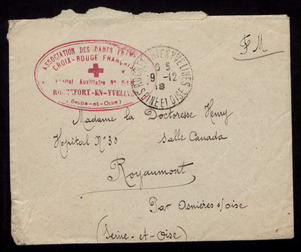 ASSOCIATION DES DAMES
CROIX-ROUGE FRANÇAISE
Hôpital Auxiliaire N°
ROCHEFORT-EN-YVELINES
(Seine-et-Oise)
ROCHEFORT EN YVELINES
9 -12
18
SEINE ET OISE
F M
Madame la Doctoresse Henry
Hopital N° 30 Salle Canada
Royaumont
Par Asnières s/oise
(Seine-et-Oise)